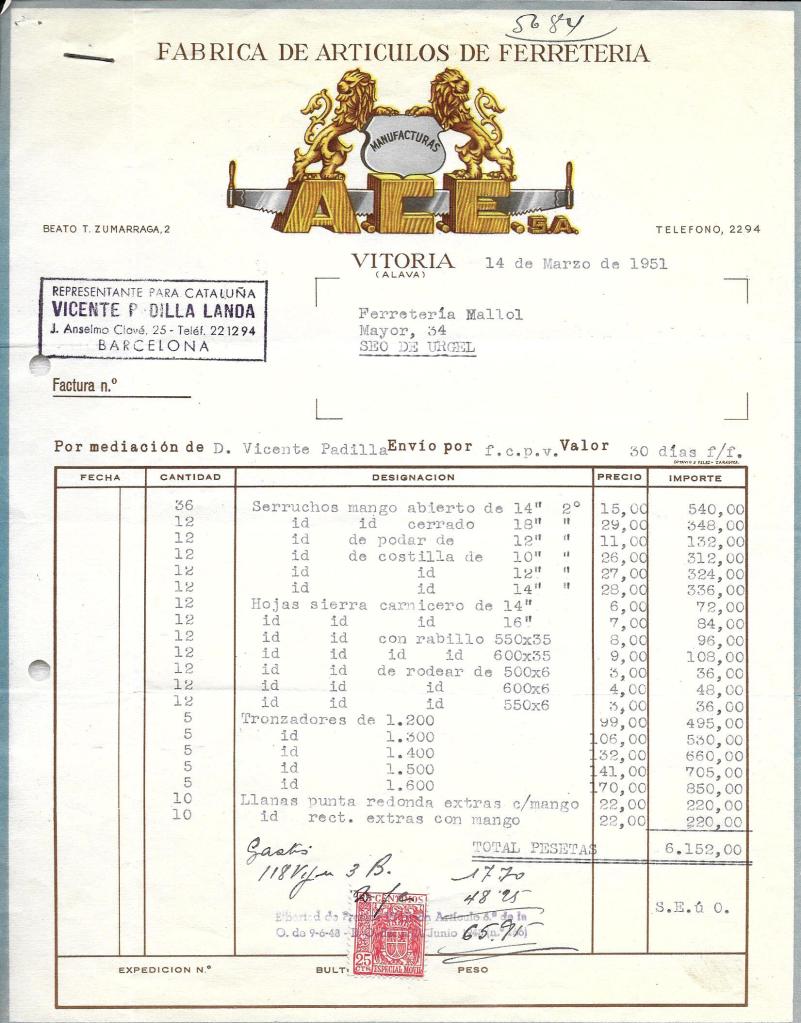 5684
FABRICA DE ARTICULOS DE FERRETERIA
MANUFACTURAS
A.C.E. S.A.
BEATO T. ZUMARRAGA, 2
TELEFONO, 2294
VITORIA
(ALAVA)
14 de Marzo de 1951
REPRESENTANTE PARA CATALUÑA
VICENTE P DILLA LANDA
J. Anselmo Clavé, 25 - Teléf. 221294
BARCELONA
Ferretería Mallol
Mayor, 34
SEO DE URGEL
Factura n.º
Por mediación de D. Vicente Padilla Envío por f.c.p.v. Valor 30 días f/f.
FECHA CANTIDAD DESIGNACION PRECIO IMPORTE
36 Serruchos mango abierto de 14" 2º 15,00 540,00
12 id id cerrado 18" " 29,00 348,00
12 id de podar de 12" " 11,00 132,00
12 id de costilla de 10" " 26,00 312,00
12 id id 12" " 27,00 324,00
12 id id 14" " 28,00 336,00
12 Hojas sierra carnicero de 14" 6,00 72,00
12 id id id 16" 7,00 84,00
12 id id con rabillo 550x35 8,00 96,00
12 id id id id 600x35 9,00 108,00
12 id id de rodear de 500x6 3,00 36,00
12 id id id 600x6 4,00 48,00
12 id id id 550x6 3,00 36,00
5 Tronzadores de 1.200 99,00 495,00
5 id 1.300 106,00 530,00
5 id 1.400 132,00 660,00
5 id 1.500 141,00 705,00
5 id 1.600 170,00 850,00
10 Llanas punta redonda extras c/mango 22,00 220,00
10 id rect. extras con mango 22,00 220,00
TOTAL PESETAS 6.152,00
Gastos
3 B. 17.70
48.25
65.95
Artículo 6.º de la
O. de 9-6-48 Junio
25 CTS ESPECIAL MOVIL
S.E.ú O.
EXPEDICION N.º BULT PESO